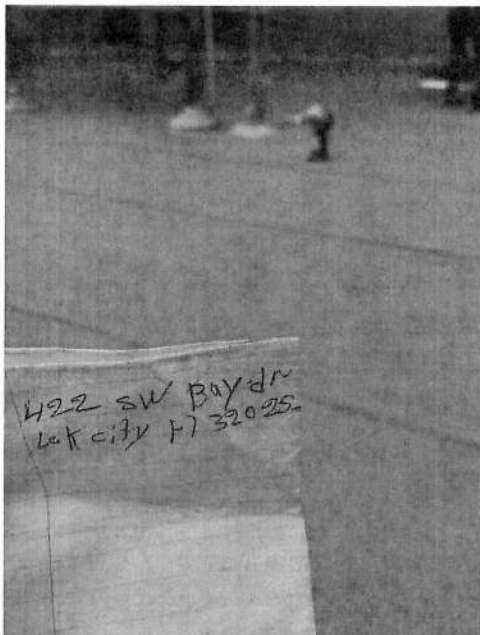 422 SW Bay dr
Lak city Fl 32025